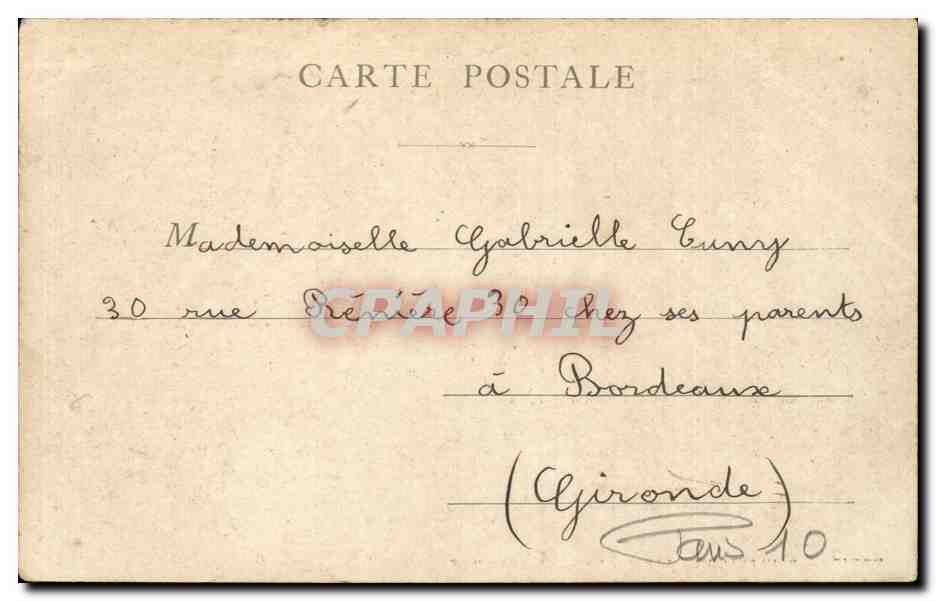 CARTE POSTALE
Mademoiselle Gabrielle Cuny
30 rue Rénière 30 chez ses parents
CPAPHIL
à Bordeaux
(Gironde)
Paris 10